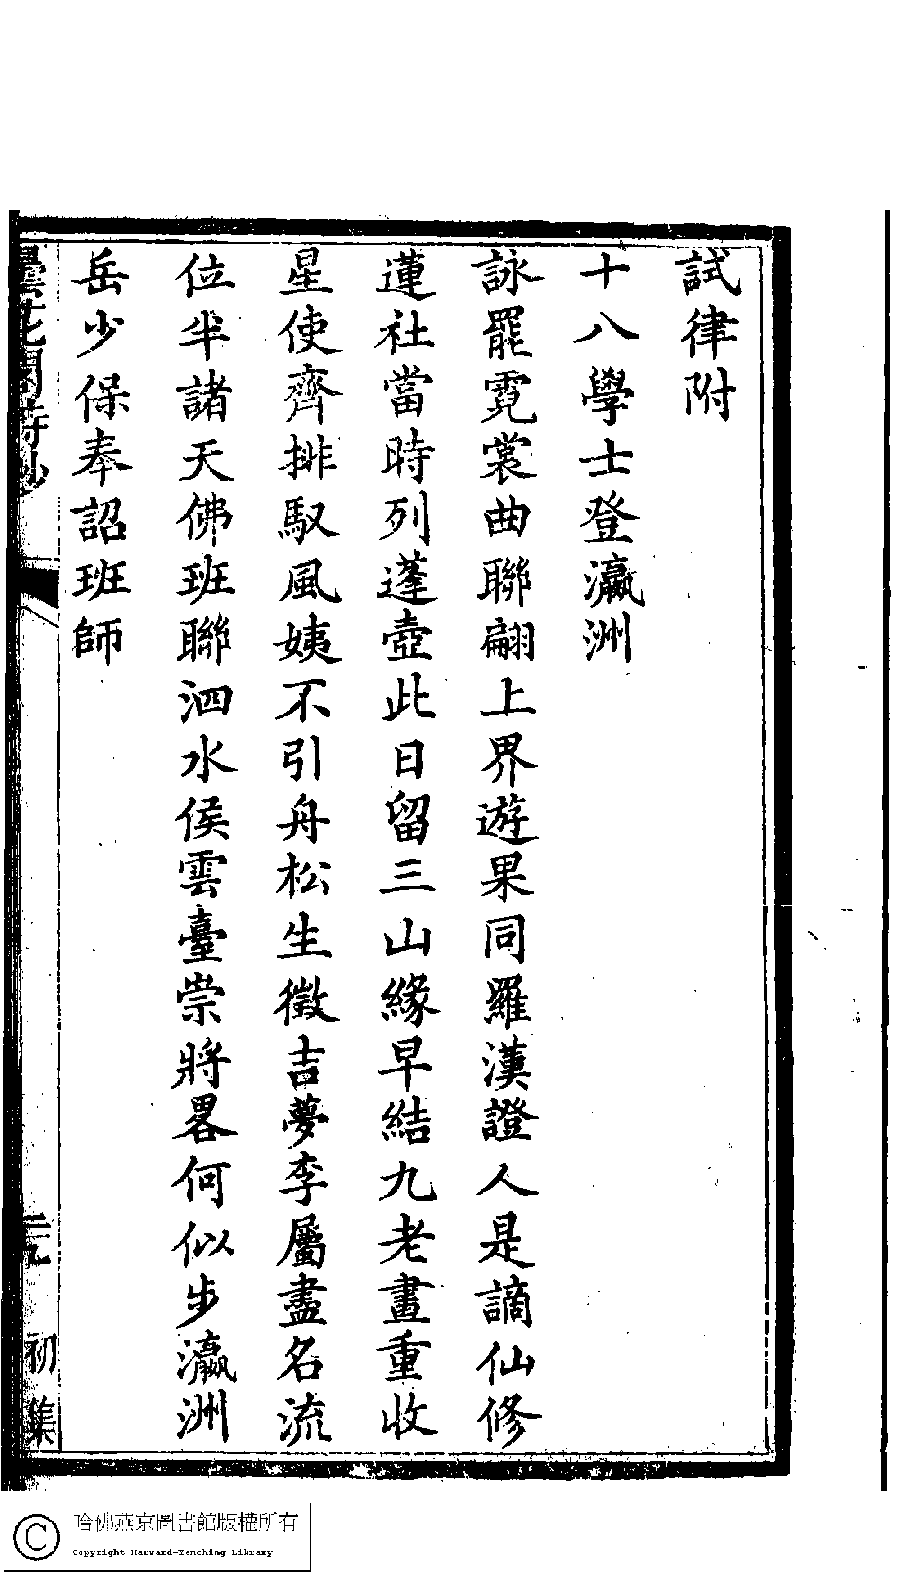 試律附
十八學士登瀛洲
詠罷霓裳曲聯翩上界遊果同羅漢證人是謫仙修
蓮社當時列蓬壺此日留三山緣早結九老畫重收
星使齊排馭風姨不引舟松生徵吉夢李屬盡名流
位半諸天佛班聯泗水侯雲臺崇將畧何似步瀛洲
岳少保奉詔班師
曇花閣詩鈔
初集
哈佛燕京圖書館版權所有
Copyright Harvard-Yenching Library